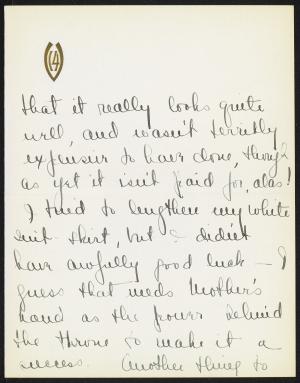 that it really looks quite
well, and wasn't terribly
expensive to have done, though
as yet it isn't paid for, alas!
I tried to lengthen my white
suit skirt, but I didn't
have awfully good luck — I
guess that needs Mother's
hand as the power behind
the throne to make it a
success. Another thing to